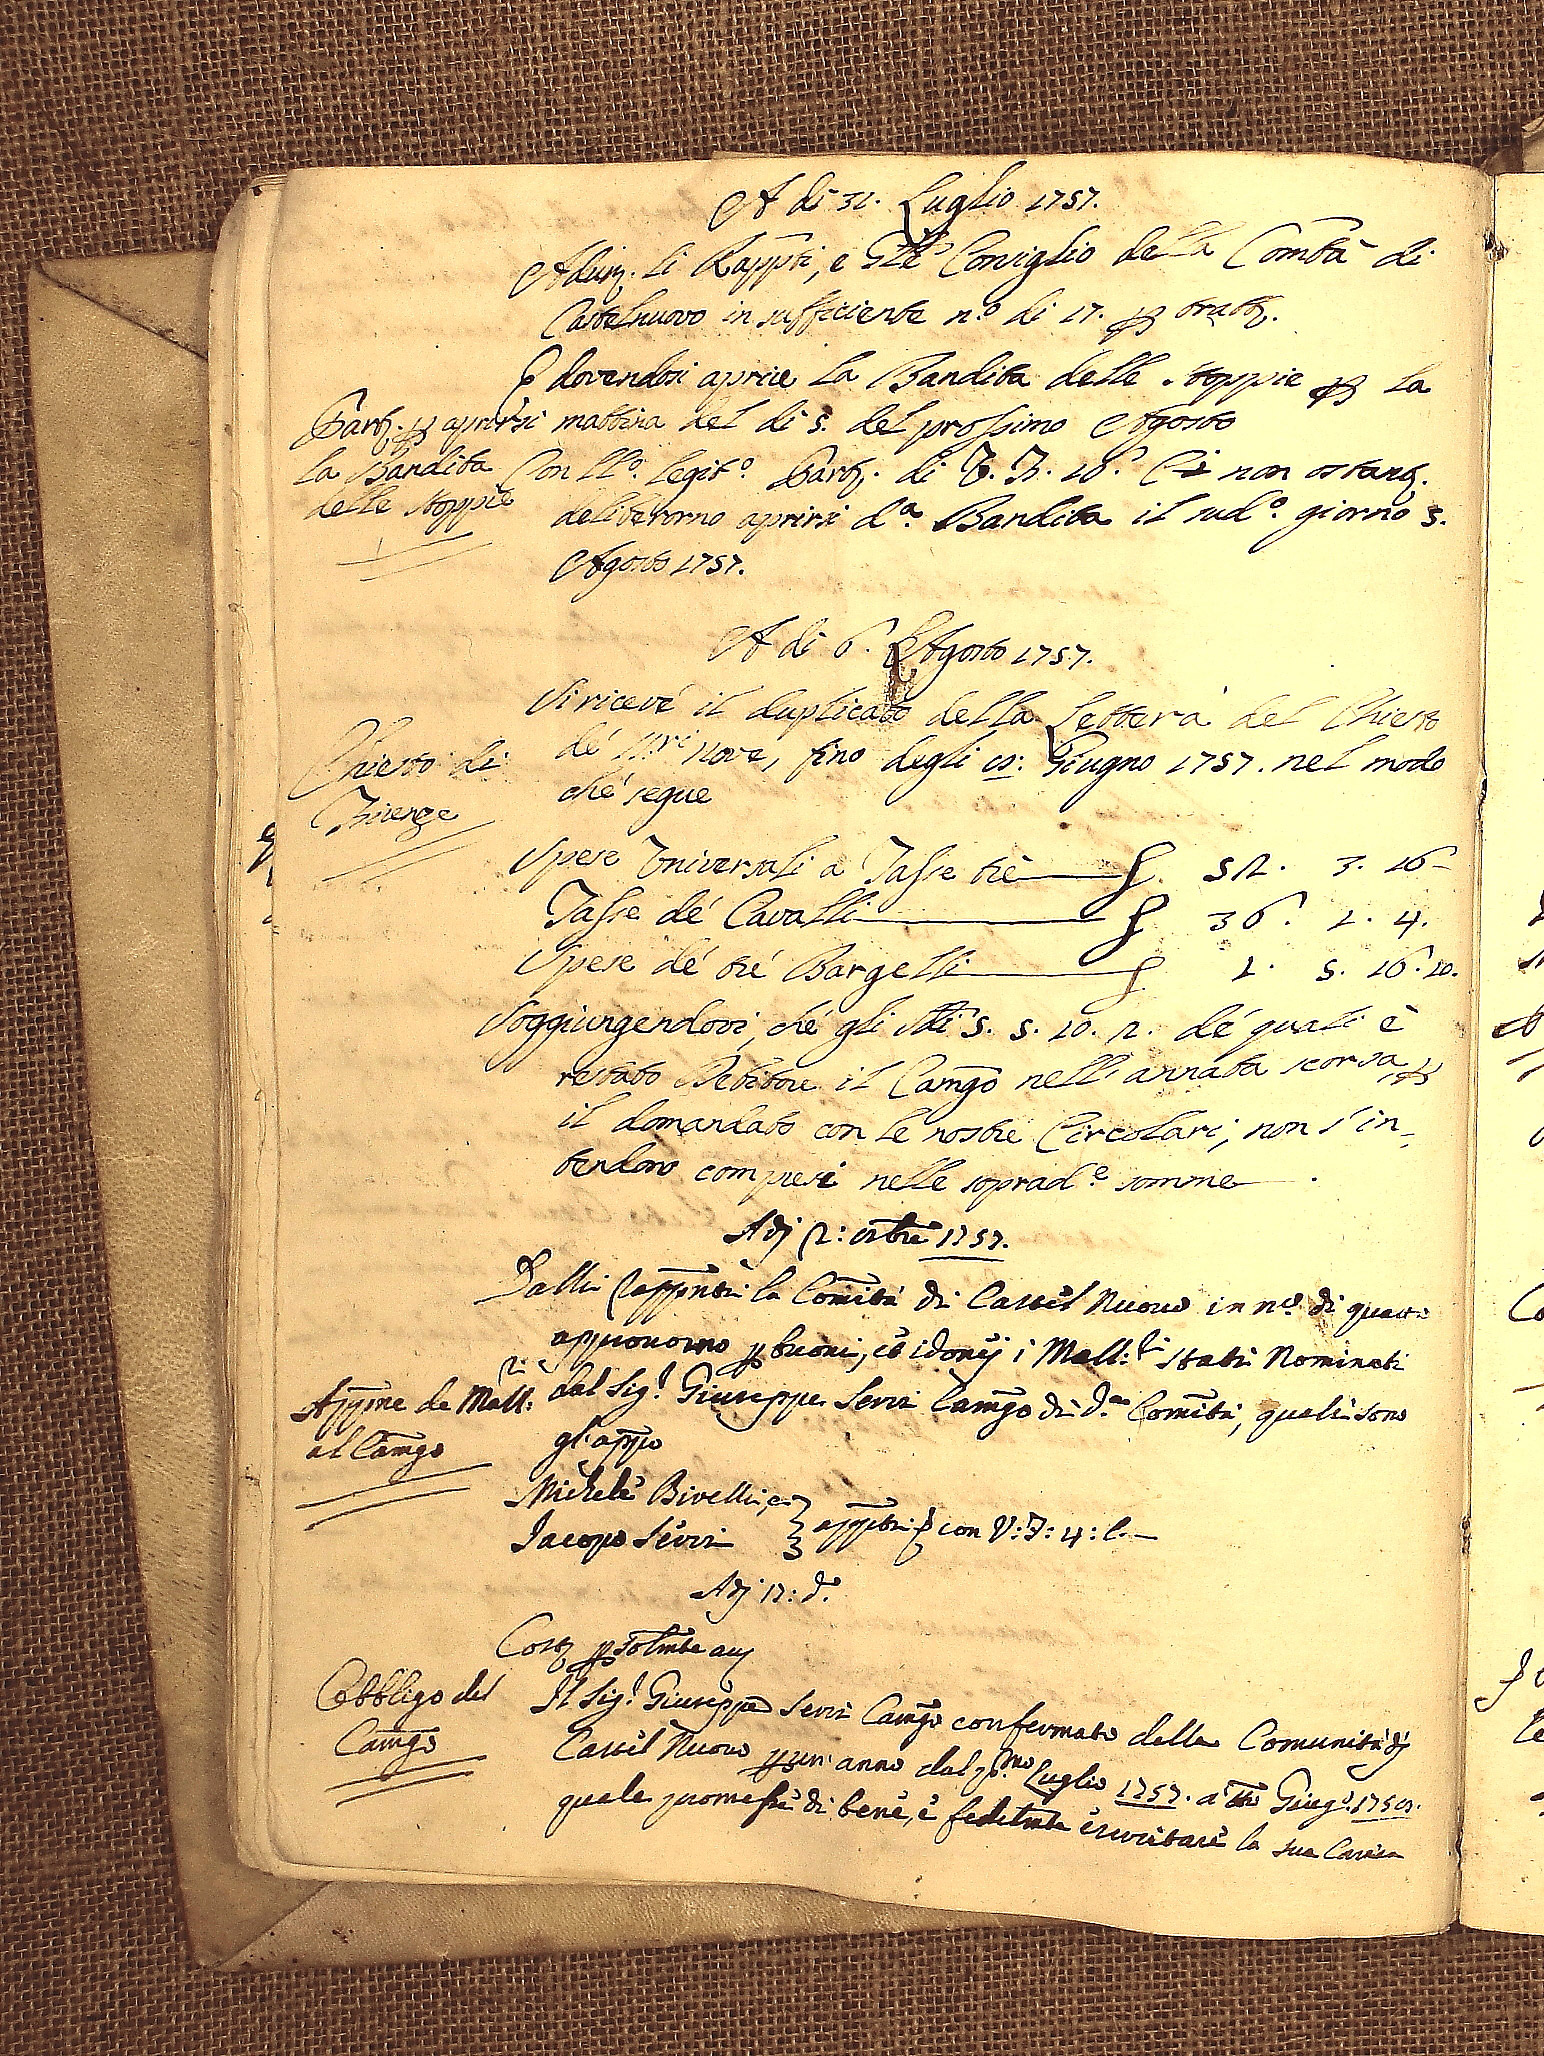 A di 31. Luglio 1757.
Adun. li Rappti, e Gle Consiglio della Combtà di
Castelnuovo in sufficiente n.o di 17. p tratt.
E dovendosi aprire la Bandita delle stoppie p la
mattina del di 5. del prossimo Agosto
Part. p aprirsi
la Bandita
delle stoppie
Con ll.o legit.o Part. di V. F. 16. C. 1 non ostant.
deliberorno aprirsi d.a Bandita il sud.o giorno 5.
Agosto 1757.
A di 6. Agosto 1757.
Si ricevé il duplicato della Lettera del Chiesto
Chiesto di
Firenze
de' SS.ri Nove, fino degli 10: Giugno 1757. nel modo
ché segue
Spese Universali a Tasse tre 52. 3. 16
Tasse dé Cavalli 36. 1. 4.
Spese dé tré Bargelli 1. 5. 16. 10.
Soggiungendosi, ché gli Sdi 5. 5. 10. 2. dé quali è
restato Debitore il Camgo nell'annata scorsa, p
il domandato con le nostre Circolari, non s'in-
tendono compresi nelle soprad.e somme
Adj 2: ottbre 1757.
Dalli Rappntri la Comità di Castel Nuovo in n.o di quattro
approvorno p buoni, et idonej i Mall:ri stati Nominati
Appne de Mall:ri
al Camgo
dal Sig.r Giuseppe Servi Camgo di d.a Comità, quali sono
gl'appo
Michele Bivelli, e
Jacopo Servi
appti con V: F: 4: C.
Adj 12: d.o
Cost. p solmte avj
Obbligo del
Camgo
Il Sig.r Giuseppe Servi Camgo confermato dalla Comunità dj
Castel Nuovo p un anno dal p.mo Luglio 1757. a tto Giug.o 1758.
quale promesse di bene, è fedelmte esercitare la sua Carica